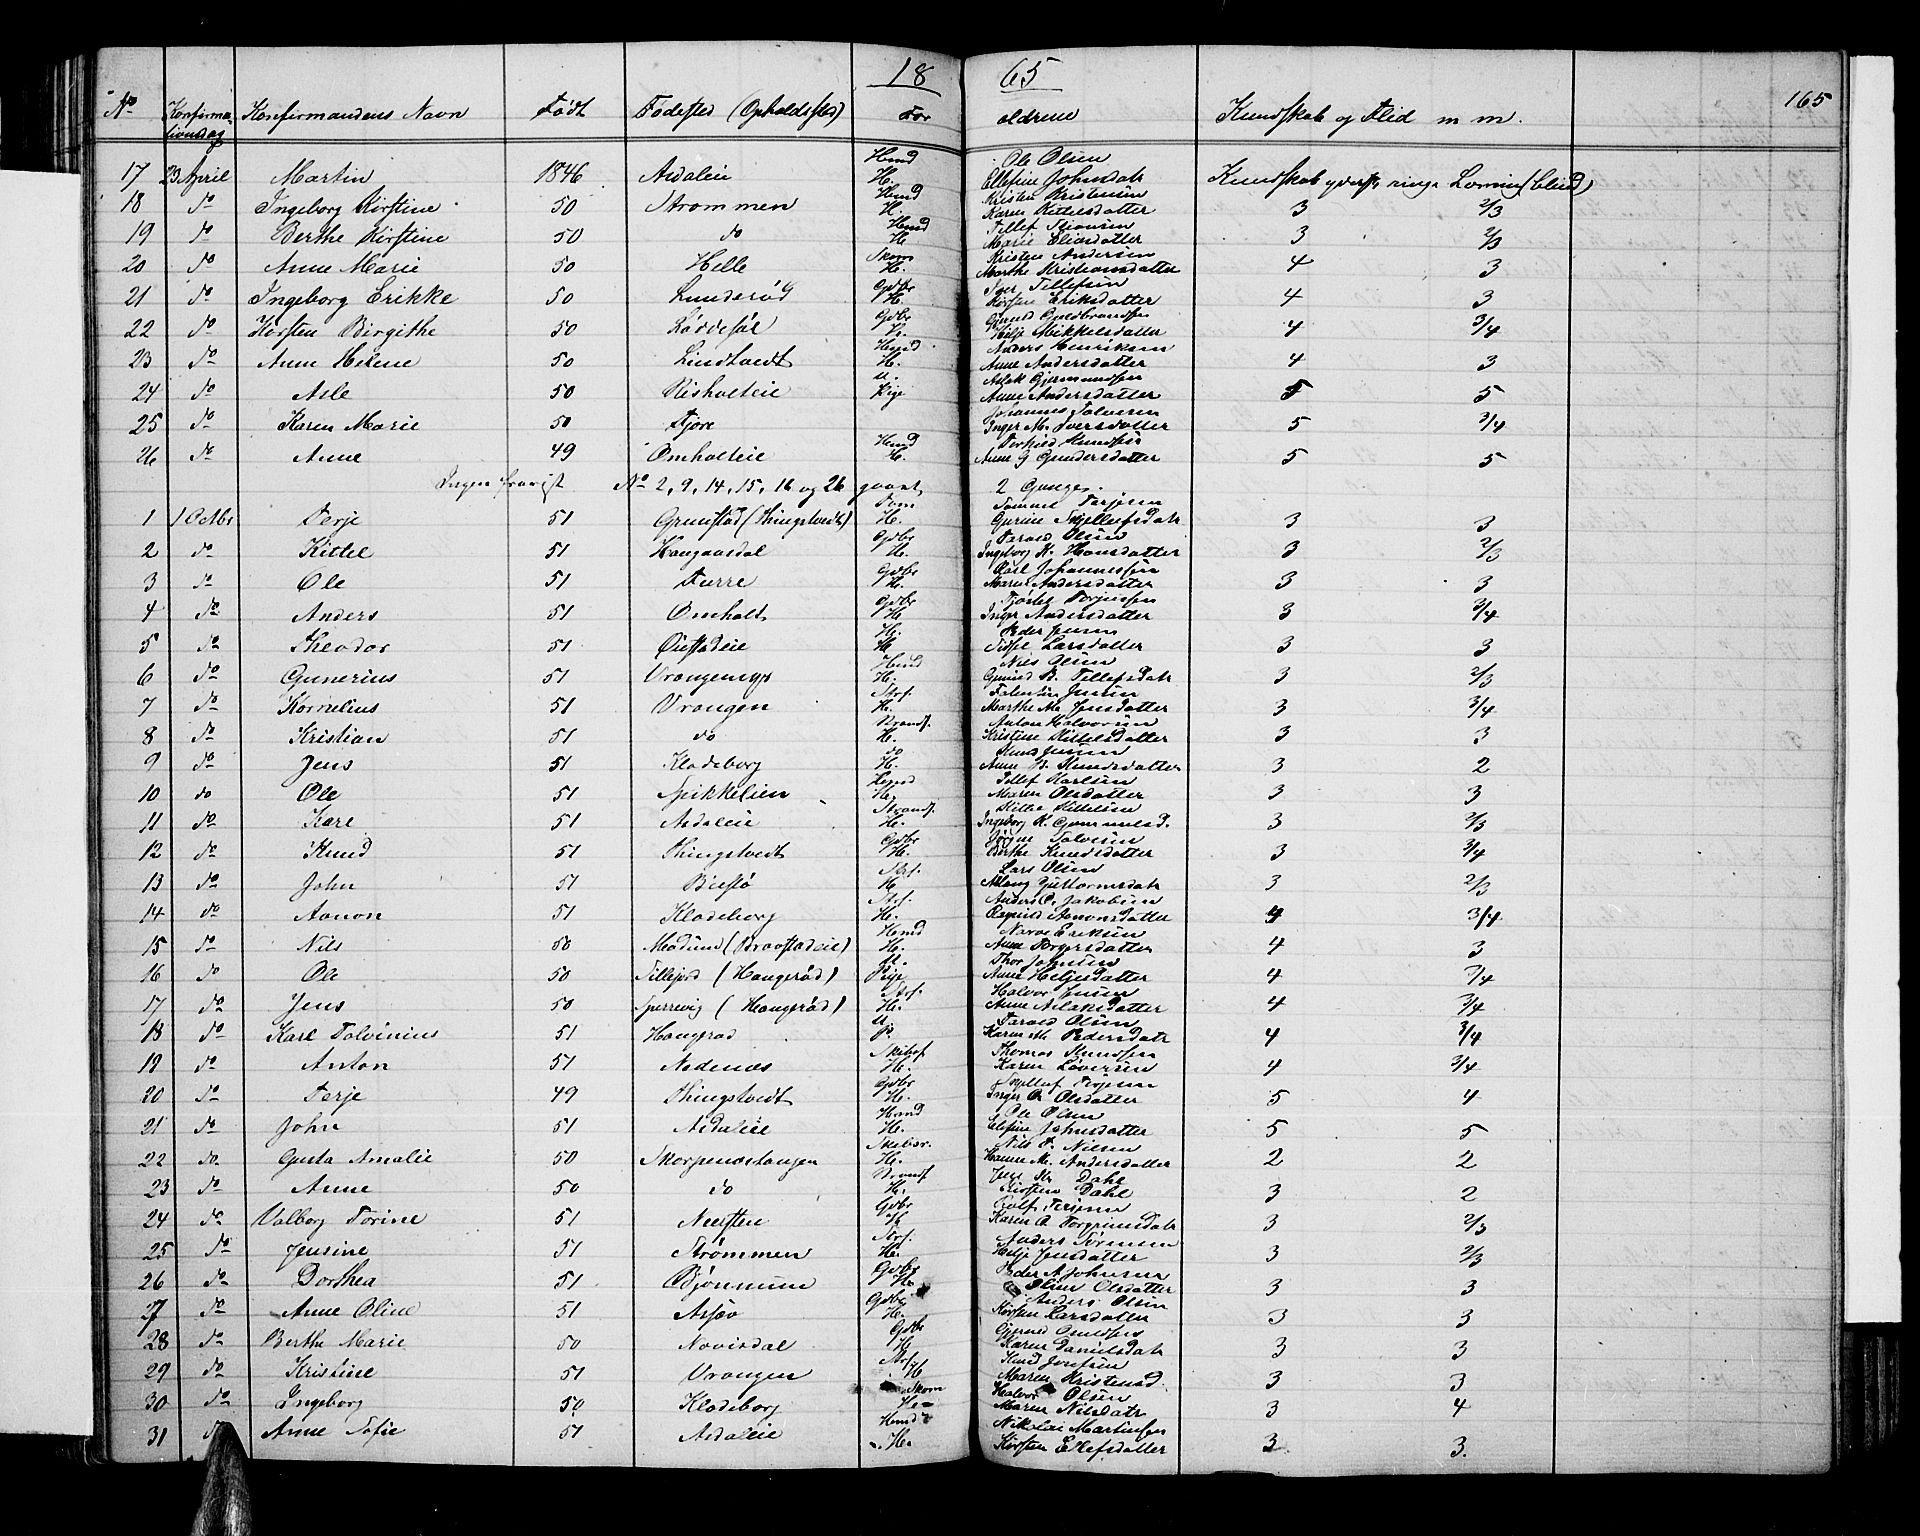 18 65
165
No Konfirmationsdag Konfirmandens Navn Født Fødested (Opholdssted) For ældrene Kundskab og Flid m m.
17 23 April Martin 1846 Asdaleie Hmd Ole Olsen H. Ellefine Johnsdatr Kundskab yderst ringe
18 do Ingeborg Kirstine 50 Strømmen Hmd Kristen Kristensen H. Karen Kittelsdatter 3 2/3
19 do Berthe Kirstine 50 do Hmd Tellef H. Marie Eliasdatter 3 2/3
20 do Anne Marie 50 Helle Skom Kristen Andersen H. Marthe Kristiansdatter 4 3
21 do Ingeborg Erikke 50 Lunderød Gdbr Tellefsen H. Kirsten Eriksdatter 4 3
22 do Kirsten Birgithe 50 Gdbr Gjerud Guldbrandsen H. Helje Mikkelsdatter 4 3/4
23 do Anne Helene 50 Lindtvedt Hmd Anders Henriksen H. Anne Andersdatter 4 3
24 do Asle 50 Risholteie U. Aslak Gjermundsen Pige Anne Andersdatter 5 5
25 do Karen Marie 50 Fjære Johannes Talvesen Inger M. Iversdatter 5 3/4
26 do Anne 49 Omholteie Hmd Terkild Knudsen H. Anne G Gundersdatter 5 5
Ingen fravist No 2, 9, 14, 15, 16 og 26 gaaet 2 Gange.
1 1 Octbr Terje 51 Grimstad (Thingstvedt) Tom Tommes Terjesen H. Gurine Tjellefsdatr 3 3
2 do Kittel 51 Haugaasdal Gdbr Tarald Olsen H. Ingeborg K. Hansdatter 3 2/3
3 do Ole 51 Furre Gdbr Karl Johannessen H. Maren Andersdatter 3 3
4 do Anders 51 Omholt Gdbr Tjøstel Torjussen H. Inger Andersdatter 3 3/4
5 do Theodor 51 Øiestadeie H. Peder Jensen H. Larsdatter 3 3
6 do Gunerius 51 Hmd Nils Olsen H. Gunild B. Tellefsdatr 3 2/3
7 do Kornelius 51 Vrangen Strf. Falentin Jensen H. Marthe M. Jensdatter 3 3/4
8 do Kristian 51 do Strandf. Anton Halvorsen H. Kristine Kittelsdatter 3 3
9 do Jens 51 Klodeborg do Knud Jensen H. Anne B. Knudsdatter 3 2
10 do Ole 51 Spikkelien Hmd Tellef Karlsen H. Maren Olsdatter 3 3
11 do Karl 51 Asdaleie Strandf. Kittel Kittelsen H. Ingeborg K. Gunnulsd. 3 2/3
12 do Knud 51 Thingstvedt Gdbr Jørgen Talvesen H. Berthe Knudsdatter 3 3/4
13 do John 51 Biestø Strf. Lars Olsen H Aslaug Guttormsdatr 3 2/3
14 do Aanon 51 Klodeborg Strf. Anders O. Jakobsen H. Ragnild Aanonsdatter 4 3/4.
15 do Nils 50 Modum (Braastadeie) Hmd Narve Eriksen H. Anne Torgersdatter 4 3
16 do Ole 50 Tillejord (Haugerød) U. Thor Johnsen Pige Anne Heljesdatter 4 3/4
17 do Jens 50 Sperrevig (Haugerød) Strf. Halvor Jensen H. Anne Aslaksdatter 4 3/4
18 do Karl Tolvinius 51 Haugerød U. Tarald Olsen P. Karen M. Pedersdatr 4 3/4
19 do Anton 51 Nedenæs Skibsf Thomas Knudsen H. Karen Løversen 4 3/4
20 do Terje 49 Thingstvedt Gdbr Tjellef Terjesen H. Inger O. Olsdatter 5 4
21 do John 51 Asdaleie Hmd Ole Olsen H. Elefine Johnsdatter 5 5
22 do Gusta Amalie 50 Skorpenestangen Skibsr. Nils T. Nilsen H. Hanne M. Andersdatter 2 2
23 do Anne 50 do Strandf Jens Kr Dahl H. Kirsten Dahl 3 2
24 do Valborg Torine 51 Neersten Gdbr Rolf Terjesen H Karen A Torgrimsdatr 3 2/3
25 do Jensine 51 Strømmen Strf. Anders Sørensen H. Helje Jensdatter 3 2/3
26 do Dorthea 51 Bjønnum Gdbr Peder A Johnsen H. Olsdatter 3 3
27 do Anne Oline 51 Assev Gdbr Anders Olsen H. Kirsten Larsdatter 3 3
28 do Berthe Marie 50 Novisdal Gdbr Gjerud H Karen Danielsdatr 3 3
29 do Kristine 51 Vrangen Strf. Knud Josefsen H Maren Kristensd 3 3
30 do Ingeborg 50 Klodeborg Skom Halvor Olsen H. Maren Nilsdatr 3 4
31 do Anne Sofie 51 Asdaleie Hmd Nikolai Martinsen H. Kirsten Ellefsdatter 3 3.